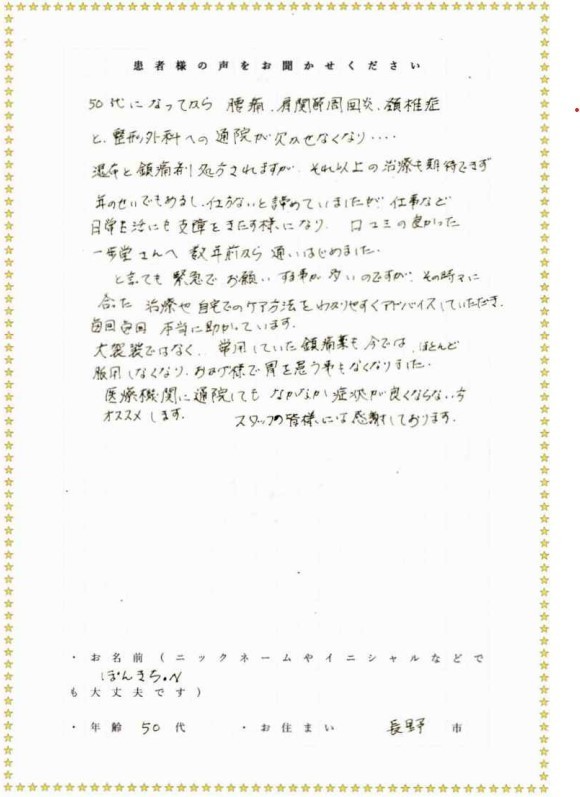 患者様の声をお聞かせください
50代になってから 腰痛、肩関節周囲炎、頚椎症
と、整形外科への通院が欠かせなくなり・・・・
湿布と鎮痛剤処方されますが、それ以上の治療も期待できず
年のせいでもあるし、仕方ないと諦めていましたが 仕事など
日常生活にも支障をきたす様になり、口コミの良かった
一歩堂さんへ 数年前から 通いはじめました。
と言っても 緊急で お願いする事が多いのですが、その時々に
合った 治療や自宅でのケア方法をわかりやすくアドバイスしていただき、
毎回毎回 本当に助かっています。
大袈裟ではなく、常用していた鎮痛薬も今では、ほとんど
服用しなくなり、おかげ様で胃を患う事もなくなりました。
医療機関に通院しても なかなか 症状が良くならない方
オススメします。 スタッフの皆様には感謝しております。
・お名前(ニックネームやイニシャルなどで
ぽんきち.N
も大丈夫です)
・年齢 50代 ・お住まい 長野 市